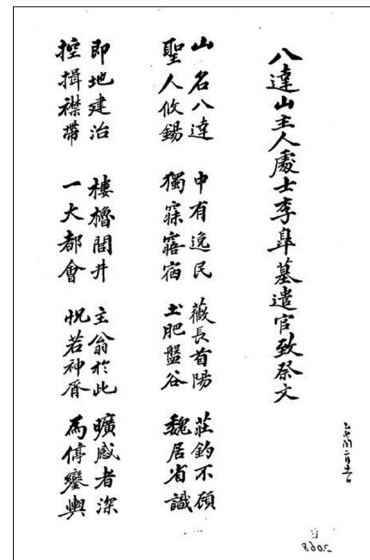 八達山主人處士李皐墓遣官致祭文
山名八達 中有逸民 薇長首陽 莊釣不頋
聖人攸錫 獨寐寤宿 土肥盤谷 魏居省識
即地建治 樓櫓閭井 主翁於此 曠感者深
控揖襟帶 一大都會 怳若神胥 為停鑾輿